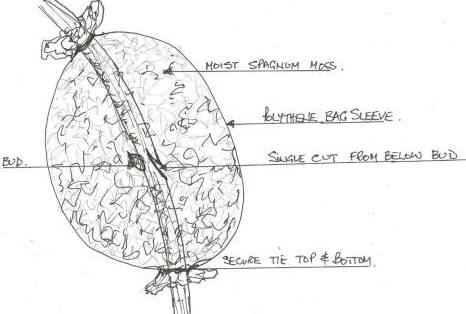 MOIST SPAGNUM MOSS.
POLYTHENE BAG SLEEVE.
BUD.
SINGLE CUT FROM BELOW BUD
SECURE TIE TOP & BOTTOM.